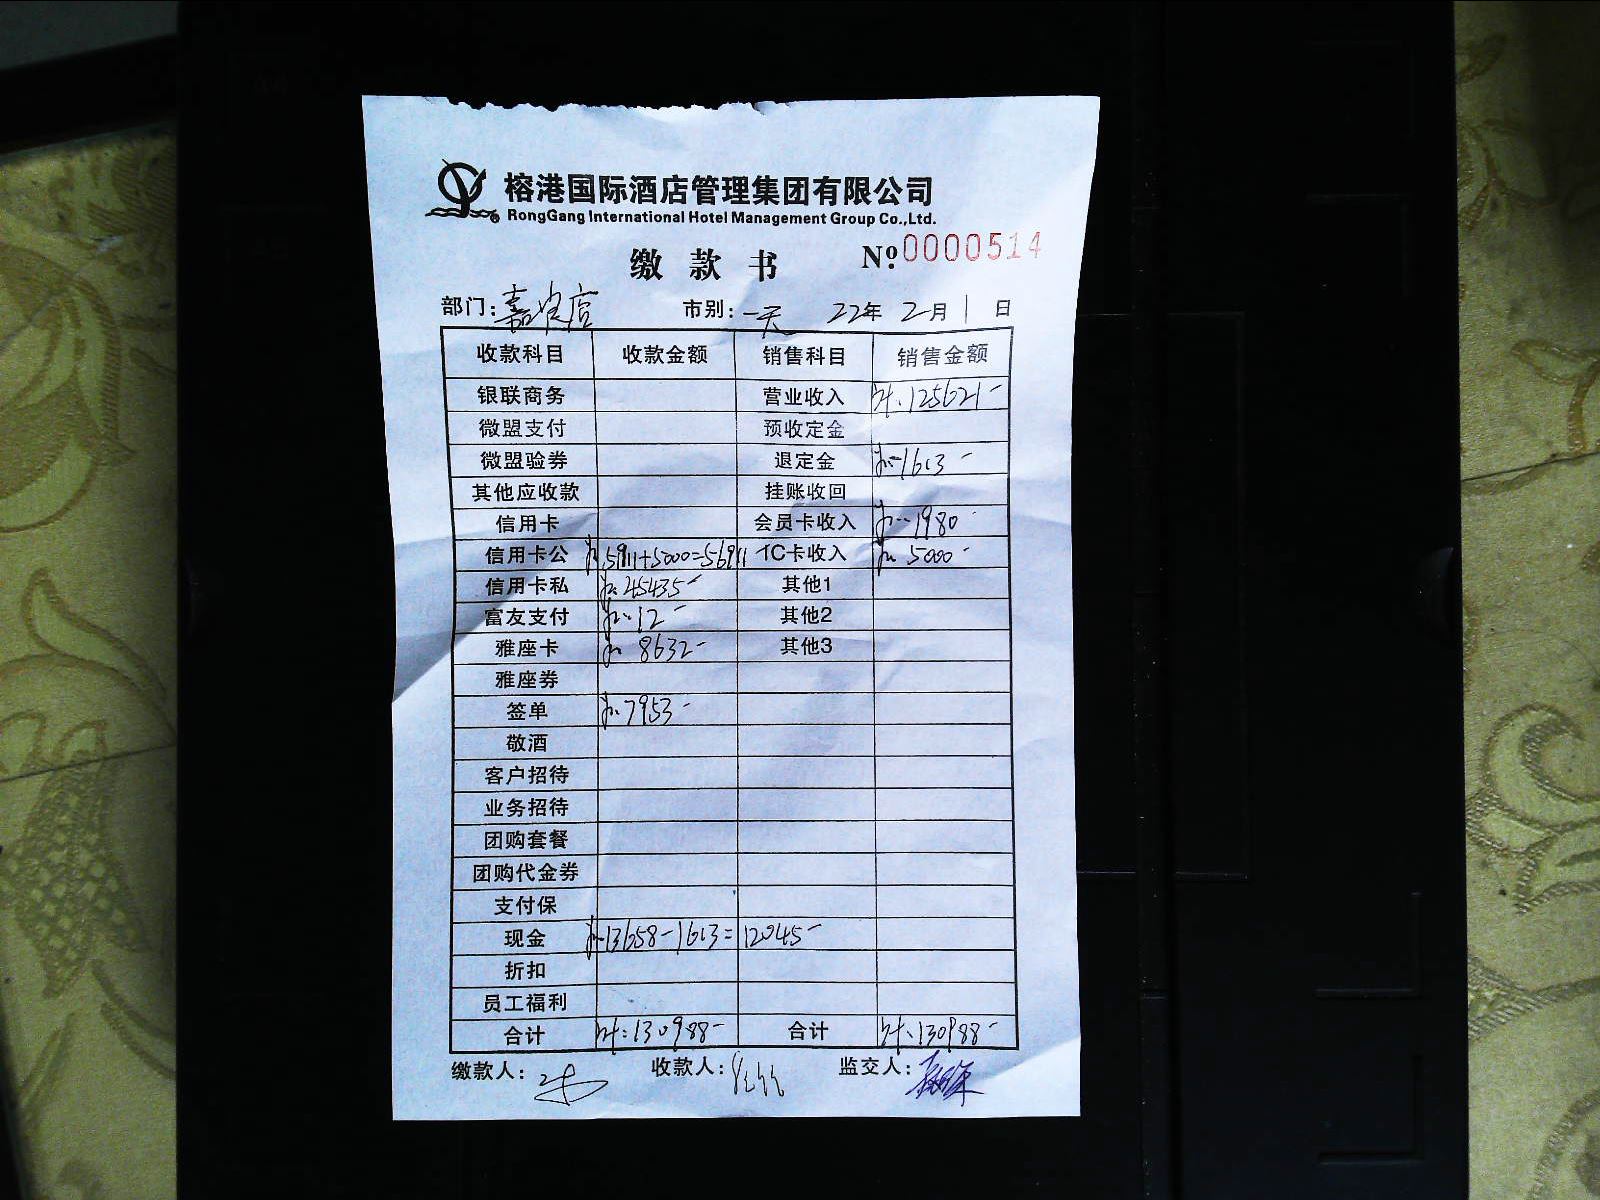 榕港国际酒店管理集团有限公司
RongGang International Hotel Management Group Co.,Ltd.
缴款书 Nº:0000514
部门: 嘉 店 市别: 一天 22年 2月 1日
收款科目 收款金额 销售科目 销售金额
银联商务 营业收入 125621-
微盟支付 预收定金
微盟验券 退定金 -1613-
其他应收款 挂账收回
信用卡 会员卡收入 1980-
信用卡公 51911+5000=56911 IC卡收入 5000-
信用卡私 45435- 其他1
富友支付 12- 其他2
雅座卡 8632- 其他3
雅座券
签单 7953-
敬酒
客户招待
业务招待
团购套餐
团购代金券
支付保
现金 13658-1613=12045-
折扣
员工福利
合计 130988- 合计 130988-
缴款人: 收款人: 监交人: